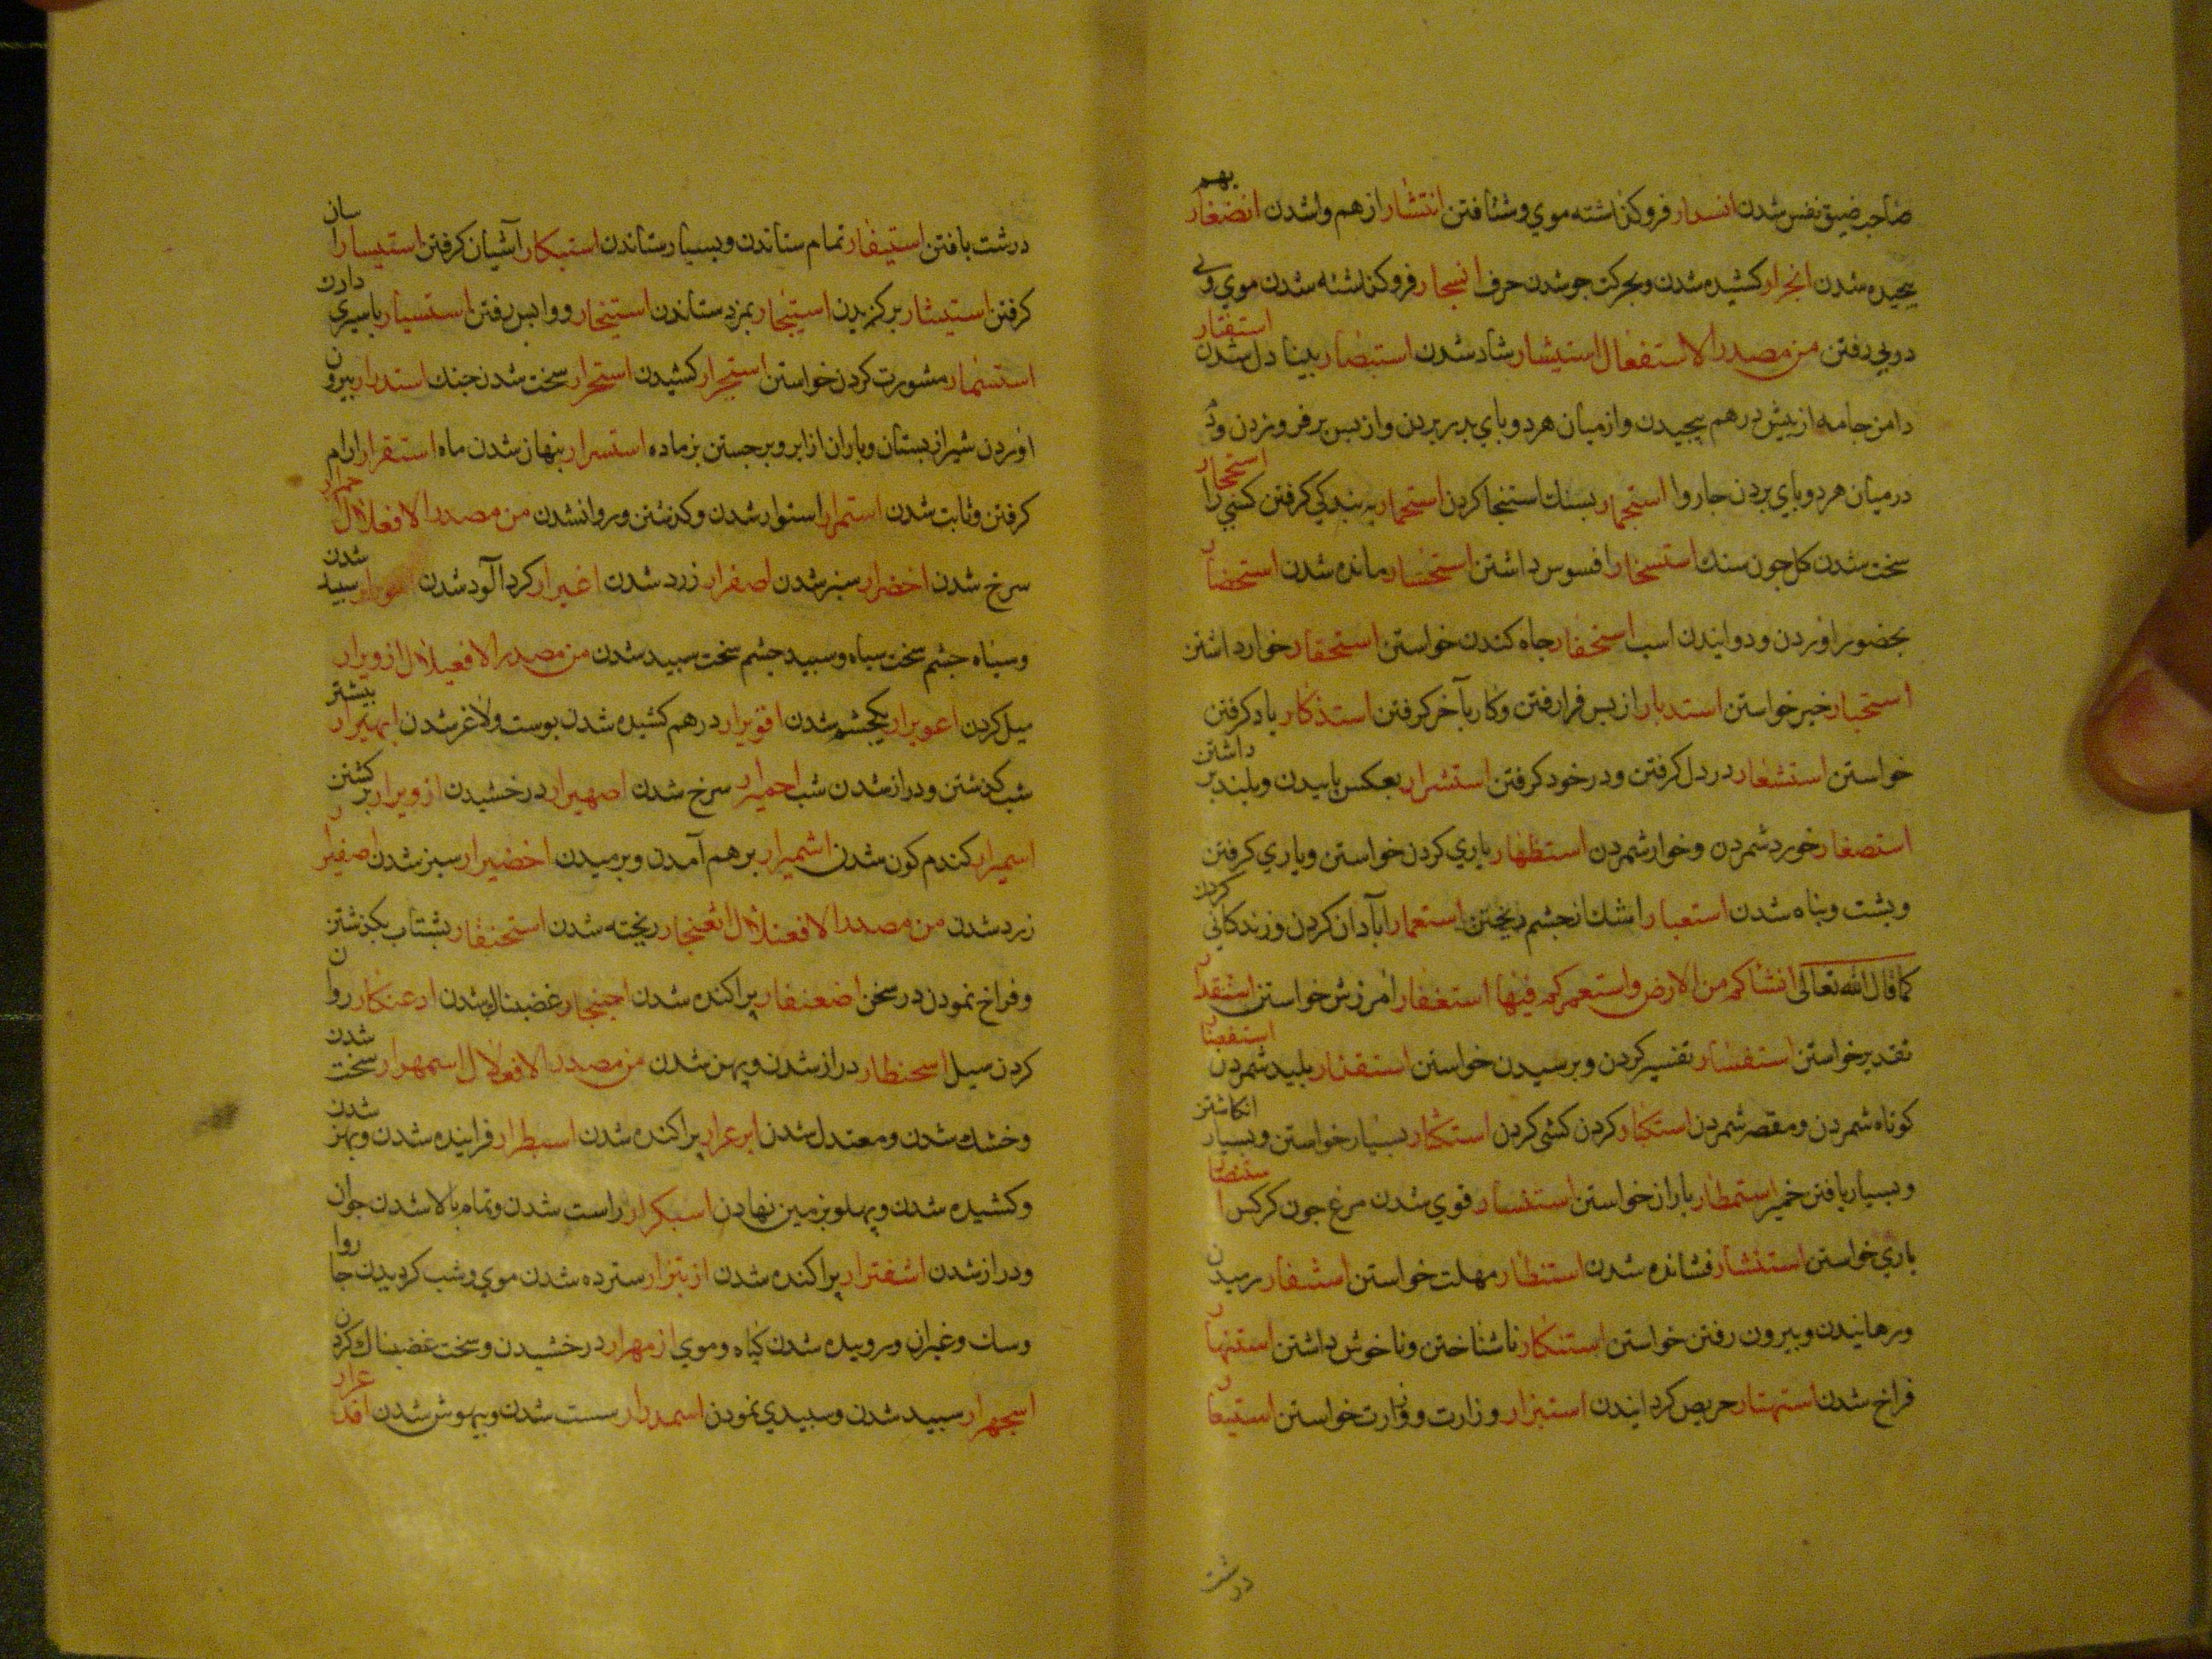 صاحب ضیق نفس شدن انسدار فروکذاشته موي و شتافتن انتشار از هم واشدن انضغار بهم
پیجیده شدن انجرار کشیده شدن و بجرکت جو شدن حرف انسجار فروکذاشته شدن موي و پی
در پی رفتن من مصدر الاستفعال استبشار شاد شدن استبصار بینا دل شدن استثفار
دامن جامه از پیش در هم پیجیدن و از میان هر دو باي بدر بردن و از بس بر فرو زدن و دم
در میان هر دو باي بردن جاروا استجمار بسنك استنجا کردن استحمار به بندکی کرفتن کسی را استحجار
سخت شدن کل جون سنك استسخار افسوس داشتن استحسار مانده شدن استحضار
بحضور اوردن و دوانیدن اسب استحفار جاه کندن خواستن استحقار خوار داشتن
استخبار خبر خواستن استدبار از بس فرا رفتن و کار بآخر کرفتن استذکار یاد کرفتن
خواستن استشعار در دل کرفتن و در خود کرفتن استشرار بعکس تابیدن و بلند بر داشتن
استصغار خورد شمردن و خوار شمردن استظهار یاري کردن خواستن و یاري کرفتن
و بشت و پناه شدن استعبار اشك از جشم ریختن استعمار آبادان کردن و زندکانی کردن
کما قال الله تعالی انشاکم من الارض و استعمرکم فیها استغفار امرزش خواستن استقدار
تقدیر خواستن استفسار تفسیر کردن و برسیدن خواستن استقذار بلید شمردن استقصار
کوتاه شمردن و مقصر شمردن استکبار کردن کشی کردن استکثار بسیار خواستن و بسیار انکاشتن
و بسیار یافتن خمیر استمطار باران خواستن استنسار قوي شدن مرغ جون کرکس استنصار
یاري خواستن استنشار فشانده شدن استنظار مهلت خواستن استنفار رمیدن
و رهانیدن و بیرون رفتن خواستن استنکار ناشناختن و ناخوش داشتن استنهار
فراخ شدن استهتار حریص کردانیدن استیزار وزارت و وزارت خواستن استیعار
درشت
درشت یافتن استیفار تمام ستاندن و بسیار ستاندن استیکار آشیان کرفتن استیسار اسان
کرفتن استیثار بر کزیدن استیجار بمزد ستاندن استیخار و وابس رفتن استسیار یاسیري دادن
استشمار مشورت کردن خواستن استجرار کشیدن استحرار سخت شدن جنك استدرار بیرون
اوردن شیر از بستان و باران از ابر و بر جستن بز ماده استسرار بنهان شدن ماه استقرار ارام
کرفتن و ثابت شدن استمرار استوار شدن و کذشتن و روا نشدن من مصدر الافعلال احمرار
سرخ شدن اخضرار سبز شدن اصفرار زرد شدن اغبرار کرد آلود شدن سبید شدن
و سیاه جشم سخت سیاه و سبید جشم سخت سبید شدن من مصدر الافعیلال ازویرار
میل کردن اعویرار یکجشم شدن اقویرار در هم کشیده شدن بوست و لاغر شدن ابهیرار بیشتر
شب کذشتن و دراز شدن شب احمیرار سرخ شدن اصهیرار درخشیدن ازویرار بر کشتن
اسمیرار کندم کون شدن اشمیرار بر هم آمدن و برمیدن اخضیرار سبز شدن اصفیرار
زرد شدن من مصدر الافعنلال اثعنجار ریخته شدن استحنفار بشتاب بکذشتن
و فراخ نمودن در سخن اضعنفار پراکنده شدن اجنجار غضبناك شدن ادعنکار روان
کردن سیل اسحنطار دراز شدن و پهن شدن من مصدر الافعلال اسمهرار سخت شدن
و خشك شدن و معتدل شدن ابرعرار پراکنده شدن اسبطرار فراینده شدن و پهن شدن
و کشیده شدن و پهلو بزمین نهادن اسبکرار راست شدن و تمام بالا شدن جوان
و دراز شدن اشفترار پراکنده شدن ازبترار سترده شدن موي و شب کردیدن جاروا
و سك و غیر ان و روییده شدن کیاه و موي ازمهرار درخشیدن و سخت غضبناك کردن
اسجهرار سبید شدن و سبیدي نمودن اسمدرار سست شدن و بیهوش شدن اقذعرار